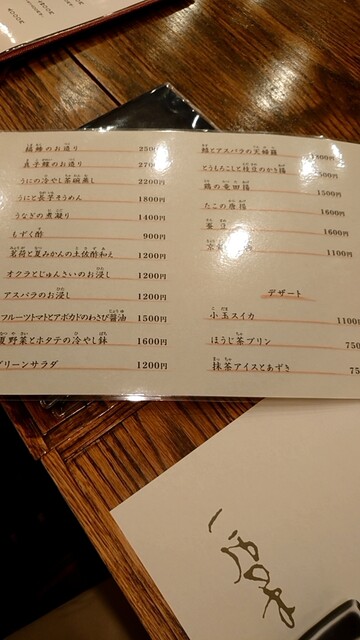 のお造り 2500円
真子鰈のお造り 2700
うにの冷やし茶碗蒸し 2200円
うにと長芋そうめん 1800円
うなぎの煮凝り 1400円
もずく酢 900円
茗荷と夏みかんの土佐酢和え 1200円
オクラとじゅんさいのお浸し 1200円
アスパラのお浸し 1200円
フルーツトマトとアボカドのわさび醤油 1500円
夏野菜とホタテの冷やし鉢 1600円
グリーンサラダ 1200円
とうもろこしと枝豆のかき揚
鶏の竜田揚 1500円
たこの唐揚 1600円
1600円
1100円
デザート
小玉スイカ 1100
ほうじ茶プリン 750
抹茶アイスとあずき 75